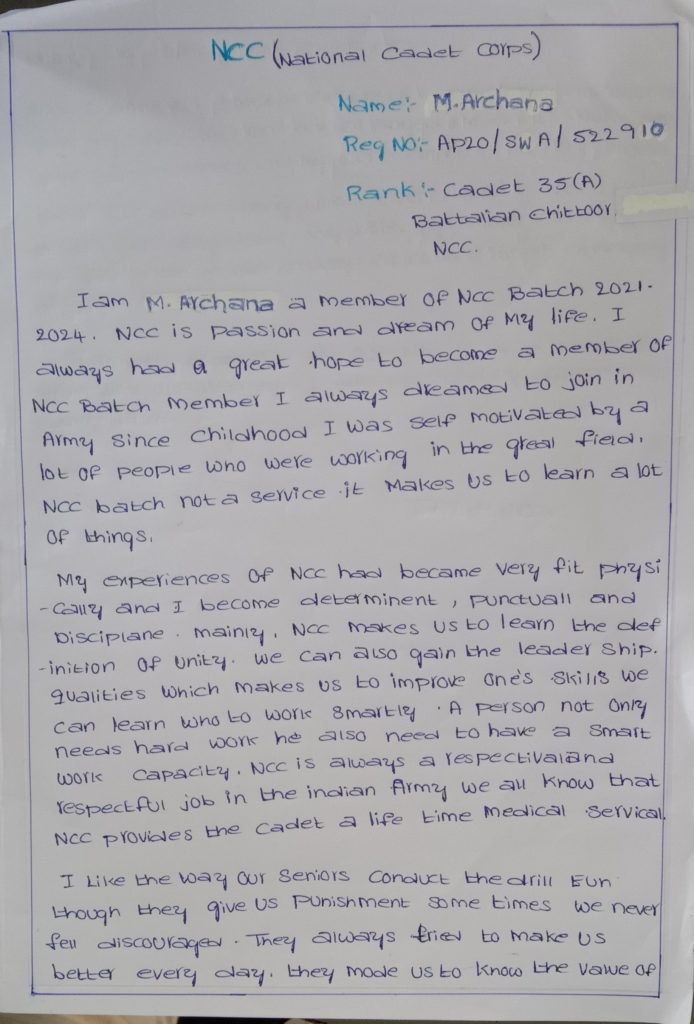 NCC (National Cadet Corps)
Name:- M. Archana
Reg No:- AP20/SWA/522910
Rank:- Cadet 35(A)
Battalian Chittoor,
NCC.
I am M. Archana a member of NCC Batch 2021-
2024. NCC is passion and dream of My life. I
always had a great hope to become a member of
NCC Batch Member I always dreamed to join in
Army since childhood I was self motivated by a
lot of people who were working in the great field.
NCC batch not a service it Makes us to learn a lot
of things.
My experiences of NCC had became very fit physi
-cally and I become determinent, punctuall and
Disciplane. mainly, NCC makes us to learn the def
-inition of unity. we can also gain the leader ship.
qualities which makes us to improve one's skills we
can learn who to work smartly. A person not only
needs hard work he also need to have a smart
work capacity. NCC is always a respectivaland
respectful job in the indian Army we all know that
NCC provides the cadet a life time medical servical.
I like the way our seniors conduct the drill Eun
though they give us punishment some times we never
fell discouraged. They always tried to make us
better every day. they made us to know the value of